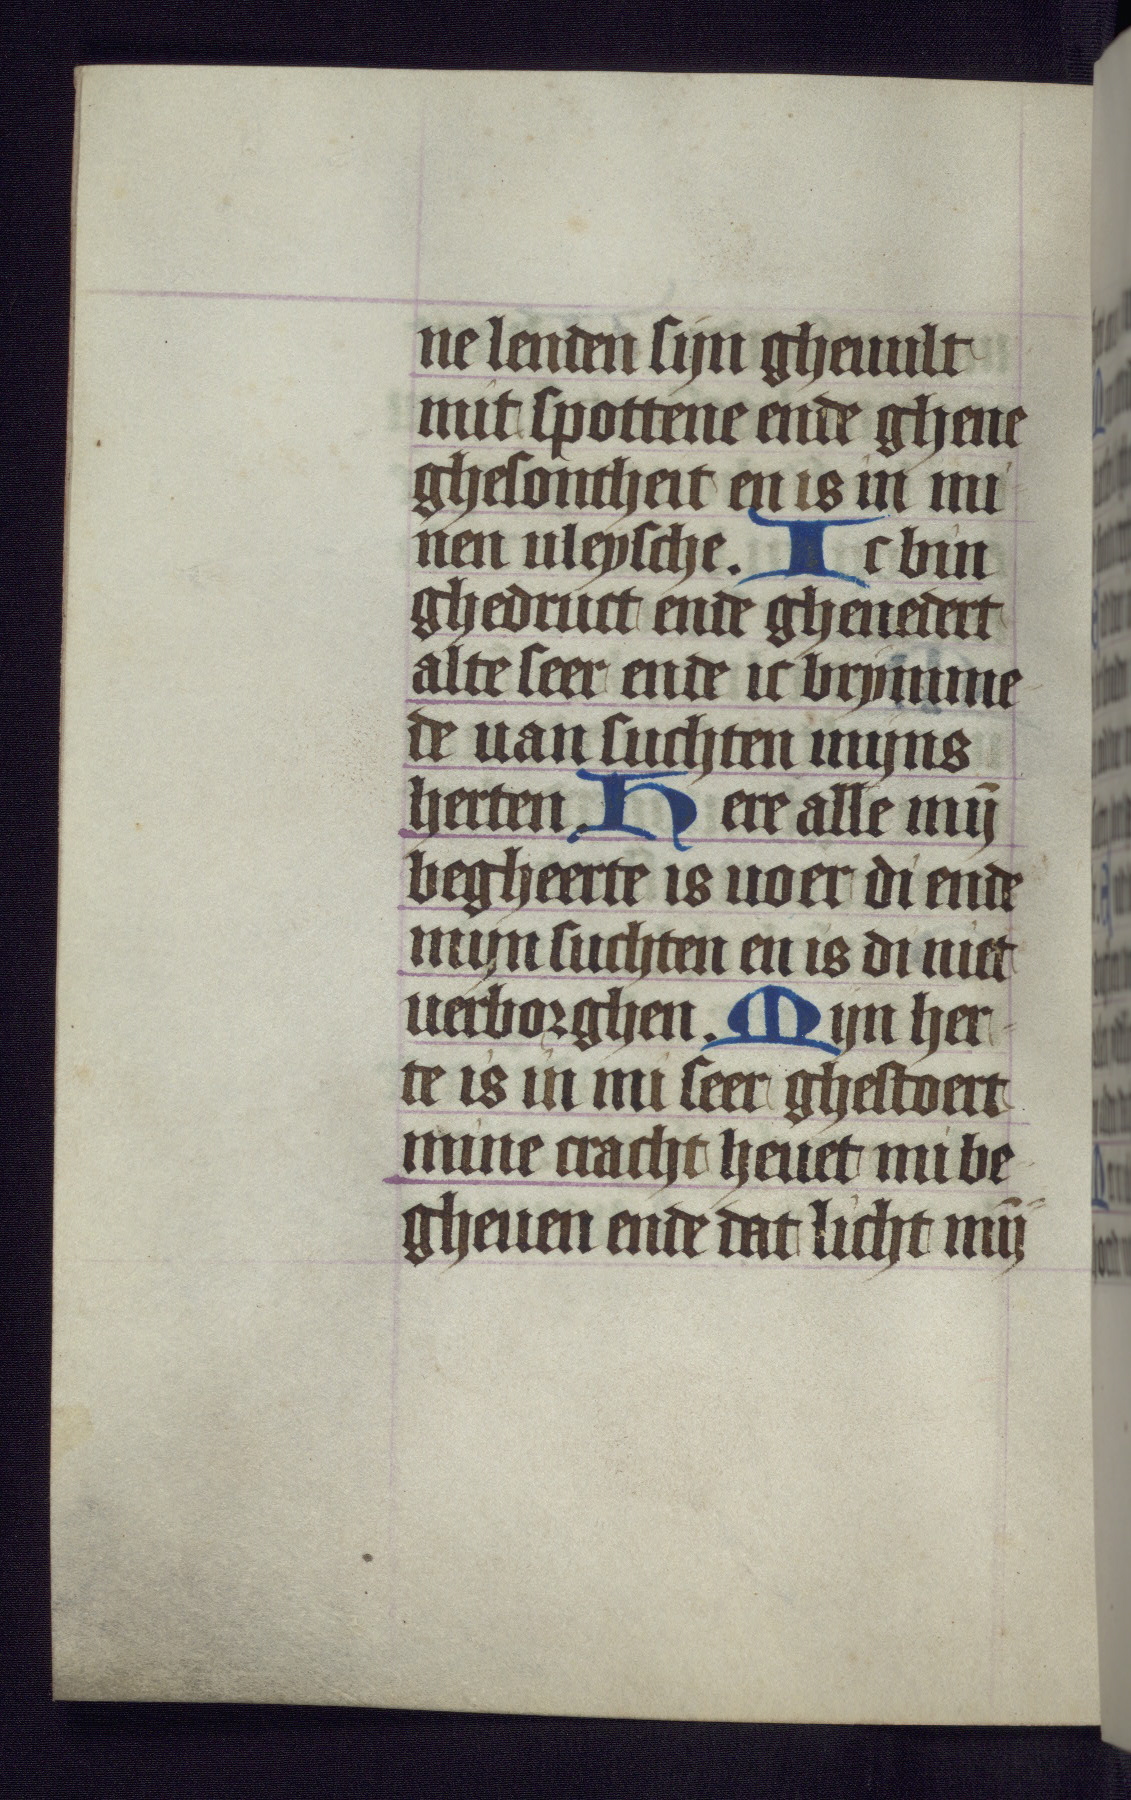 ne lenden sijn gheuult
mit spottene ende ghene
ghesontheit en is in mi
nen uleysche. Ic bin
ghedruct ende ghenedert
alte seer ende ic brymme
de uan suchten mijns
herten. Here alle mij̄
begheerte is uoer di ende
mijn suchten en is di niet
uerborghen. Mijn her
te is in mi seer ghestoert
mine cracht heuet mi be
gheuen ende dat licht mij̄